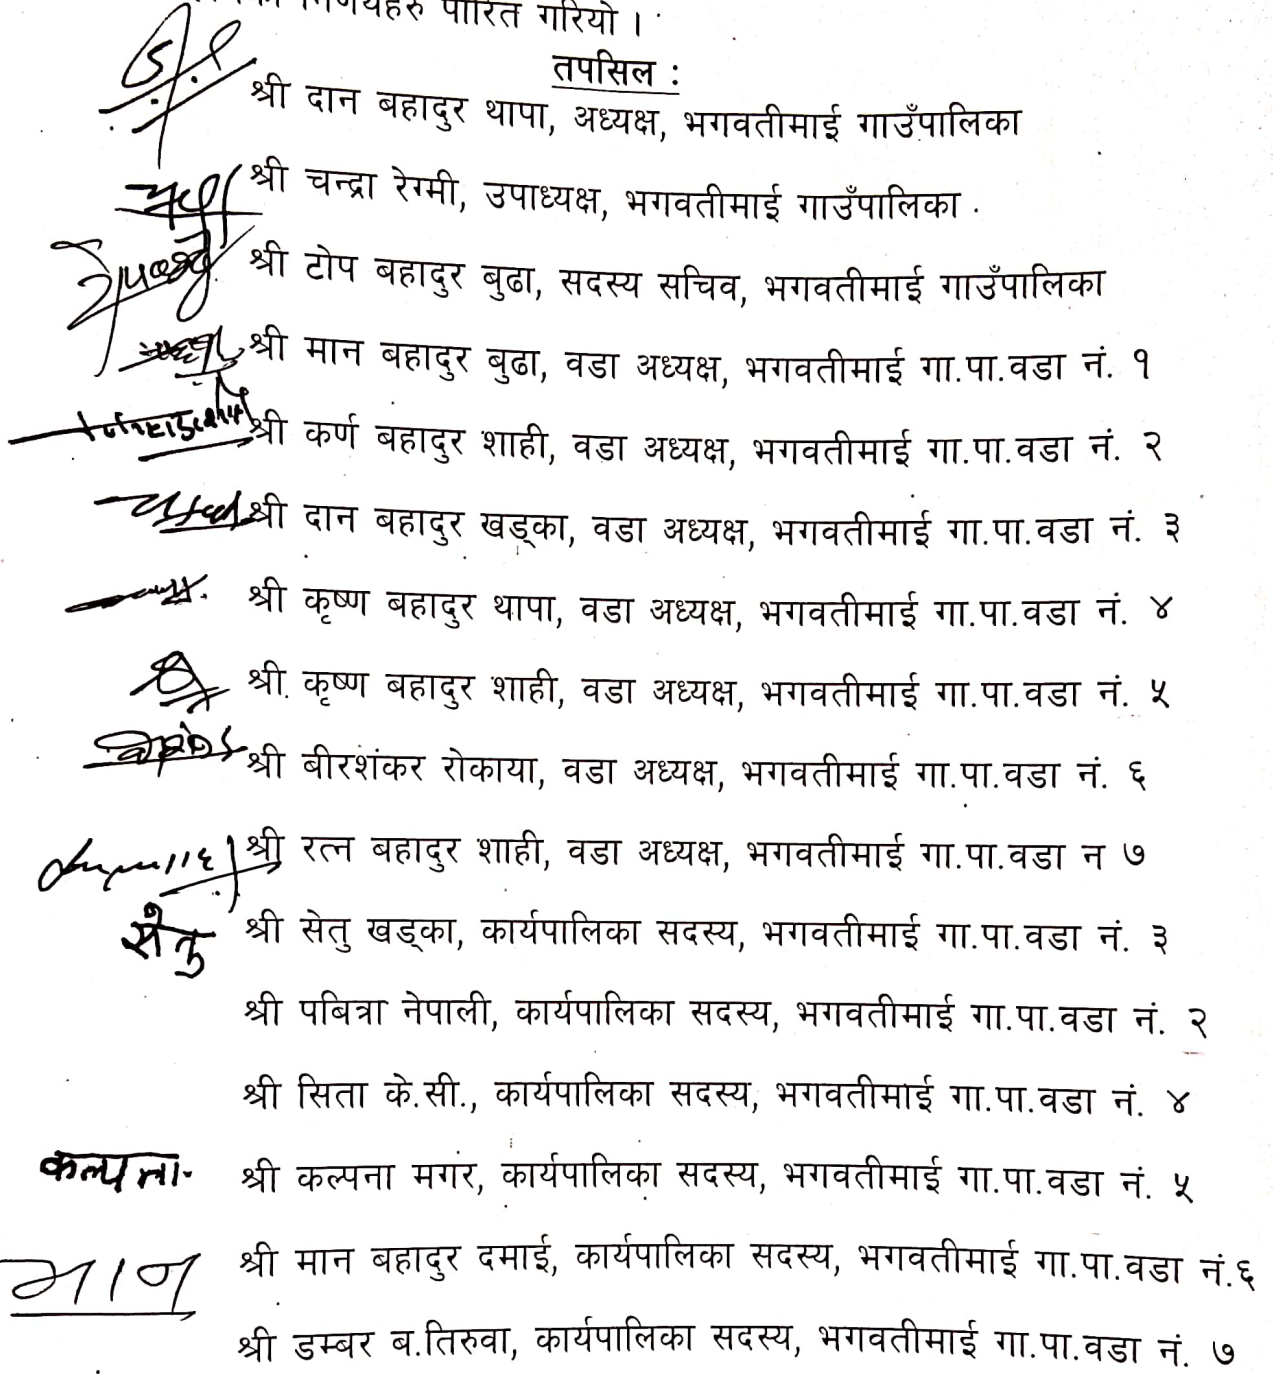 पारित गरियो ।
तपसिल :
श्री दान बहादुर थापा, अध्यक्ष, भगवतीमाई गाउँपालिका
श्री चन्द्रा रेग्मी, उपाध्यक्ष, भगवतीमाई गाउँपालिका .
श्री टोप बहादुर बुढा, सदस्य सचिव, भगवतीमाई गाउँपालिका
श्री मान बहादुर बुढा, वडा अध्यक्ष, भगवतीमाई गा.पा.वडा नं. १
श्री कर्ण बहादुर शाही, वडा अध्यक्ष, भगवतीमाई गा.पा.वडा नं. २
श्री दान बहादुर खड्का, वडा अध्यक्ष, भगवतीमाई गा.पा.वडा नं. ३
श्री कृष्ण बहादुर थापा, वडा अध्यक्ष, भगवतीमाई गा.पा.वडा नं. ४
श्री कृष्ण बहादुर शाही, वडा अध्यक्ष, भगवतीमाई गा.पा.वडा नं. ५
श्री बीरशंकर रोकाया, वडा अध्यक्ष, भगवतीमाई गा.पा.वडा नं. ६
श्री रत्न बहादुर शाही, वडा अध्यक्ष, भगवतीमाई गा.पा.वडा न ७
सेतु श्री सेतु खड्का, कार्यपालिका सदस्य, भगवतीमाई गा.पा.वडा नं. ३
श्री पबित्रा नेपाली, कार्यपालिका सदस्य, भगवतीमाई गा.पा.वडा नं. २
श्री सिता के.सी., कार्यपालिका सदस्य, भगवतीमाई गा.पा.वडा नं. ४
कल्पना श्री कल्पना मगर, कार्यपालिका सदस्य, भगवतीमाई गा.पा.वडा नं. ५
मान श्री मान बहादुर दमाई, कार्यपालिका सदस्य, भगवतीमाई गा.पा.वडा नं.६
श्री डम्बर ब.तिरुवा, कार्यपालिका सदस्य, भगवतीमाई गा.पा.वडा नं. ७